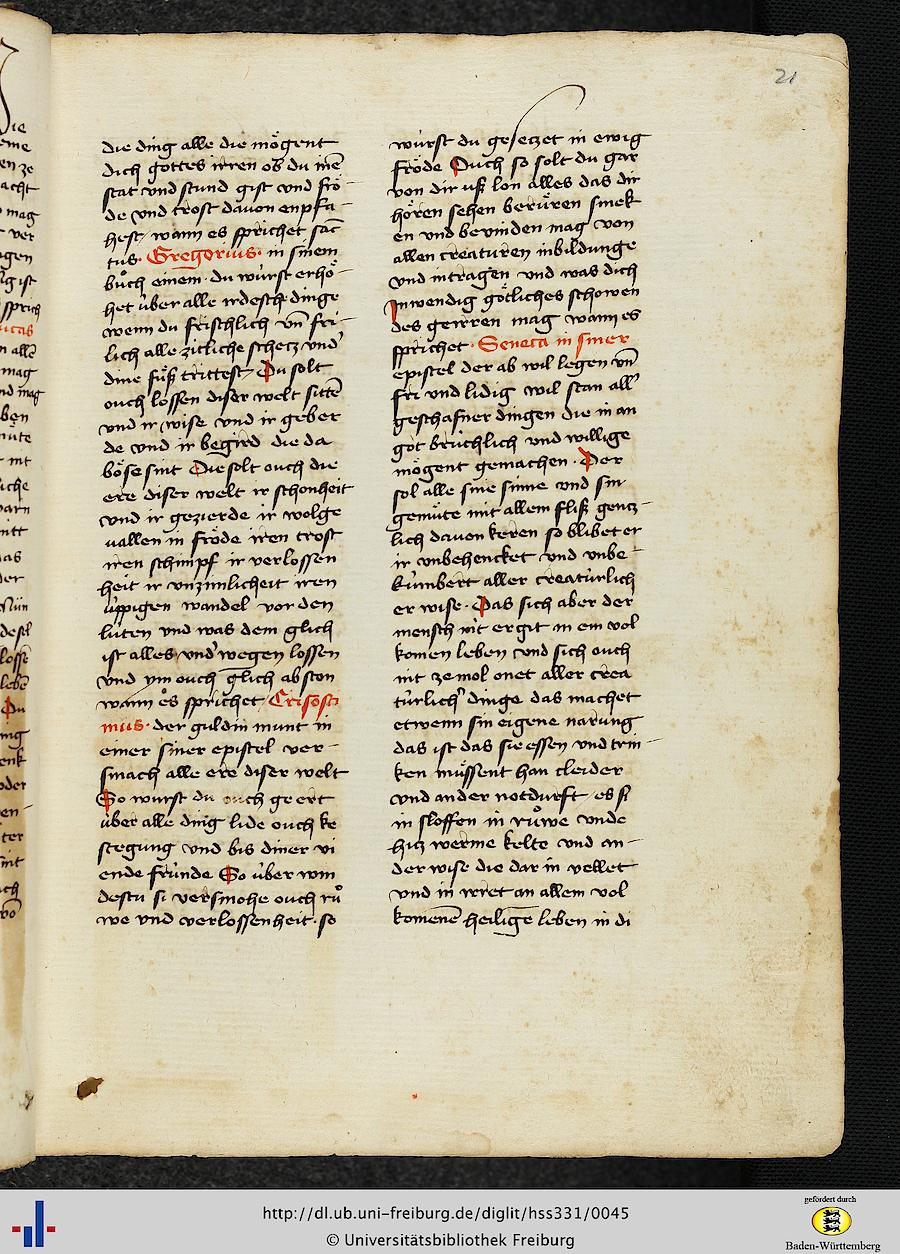 21
die ding alle die mögent
dich gottes irren ob du inē
stat vnd stund gist vnd frö-
de vnd trost dauon enpfa-
hest wann es sprichet sāc
tus Gregorius in sinem
bůch einem du würst erhö-
het über alle irdesche dinge
wenn du frischlich vn̄ fri-
lich alle zitliche schetz vnd
dine füß trittest Du solt
ouch lossen diser welt sittē
vnd ir wise vnd ir geber
de vnd ir begird die da
böse sint Die solt ouch die
ere diser welt ir schonheit
vnd ir gezierde ir wolge
uallen in fröde iren trost
iren schimpf ir verlossen
heit ir vnzimlicheit iren
üppigen wandel vor den
lüten vnd was dem glich
ist alles vnd wegen lossen
vnd ym ouch glich abston
wann es sprichet Crisosto
mus der guldin munt in
einer siner epistel ver-
smach alle ere diser welt
So wurst du ouch geert
über alle ding lide ouch ke
stegung vnd bis diner vi
ende fründe So über win
destu si versmohe ouch rů
we vnd verlossenheit so
würst du gesetzet in ewig
fröde Ouch so solt du gar
von dir uß lon alles das dir
hören sehen berüren smek
en vnd bevinden mag von
allen creaturen inbildunge
vnd intragen vnd was dich
Inwendig götliches schowen
des gerren mag wann es
sprichet Seneca in siner
epistel der ab wil legen vn̄
fri vnd lidig wil stan all
geschafner dingen die in an
got brüchlich vnd willige
mögent gemachen Der
sol alle sine sinne vnd sin
gemüte mit allem fliß gentz-
lich dauon keren so blibet er
ir vnbehencket vnd vnbe-
kümbert aller creatürlich
er wise Das sich aber der
mensch nit ergit in ein vol
komen leben vnd sich ouch
nit zemol onet aller crea
türlich dinge das machet
etwenn sin eigene narung
das ist das sie essen vnd trin-
ken müssent han cleider
vnd ander notdurft es si
in sloffen in růwe vnde
hitz werme kelte vnd an-
der wise die dar in vellet
vnd in irret an allem vol
komenē heilige leben in di
http://dl.ub.uni-freiburg.de/diglit/hss331/0045
© Universitätsbibliothek Freiburg
gefördert durch
Baden-Württemberg